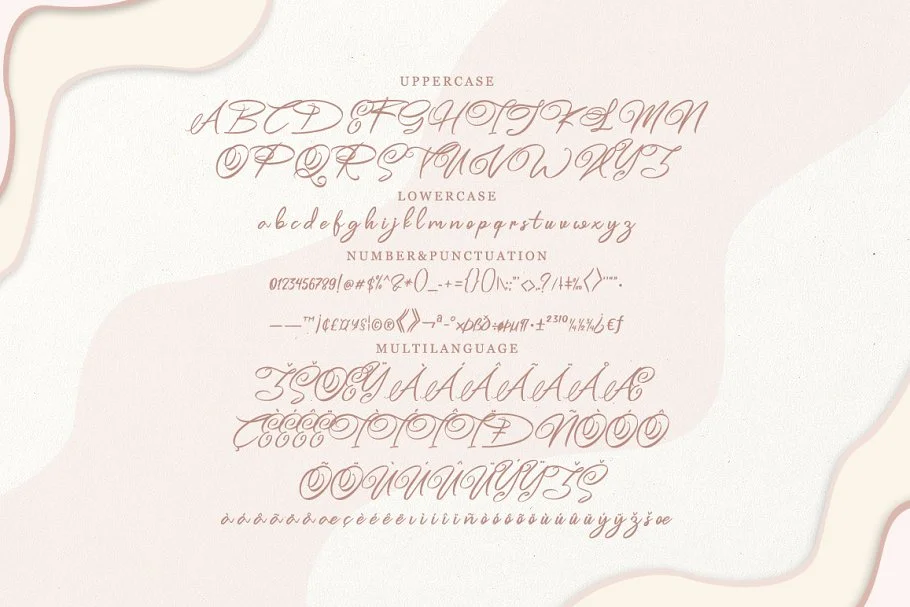 UPPERCASE
A B C D E F G H I J K L M N
O P Q R S T U V W X Y Z
LOWERCASE
a b c d e f g h i j k l m n o p q r s t u v w x y z
NUMBER&PUNCTUATION
0123456789!@#$%^&*()_-+={}[]|\:;"'<>,.?/
——™¡¢£¤¥§|©®《》¬ª-°×
MULTILANGUAGE
Ž Š Œ Ÿ À Á Â Ã Ä Å Æ
Ç È É Ê Ë Ì Í Î Ï Ð Ñ Ò Ó Ô
Õ Ö Ù Ú Û Ü Ý Ÿ Ž Š
à á â ã ä å æ ç è é ê ë ì í î ï ñ ò ó ô õ ö ù ú û ü ý ÿ ž š œ